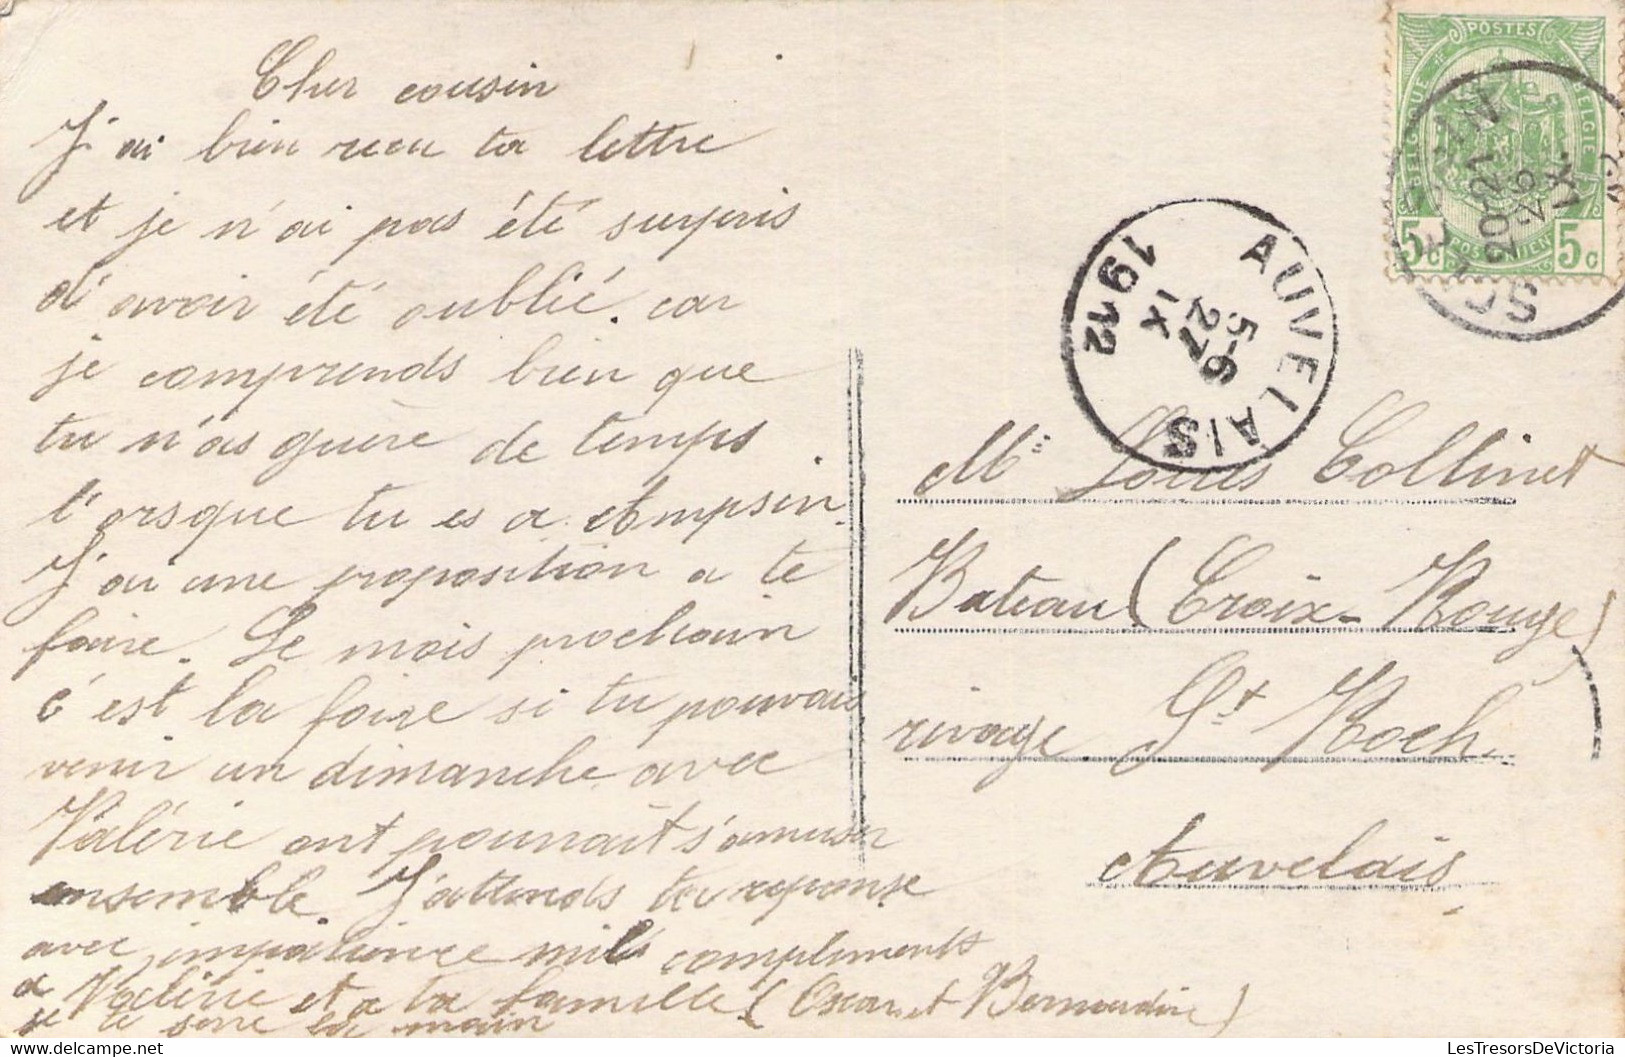 Cher cousin
J'ai bien recu ta lettre
et je n'ai pas été surpris
d'avoir été oublié. car
je comprends bien que
tu n'as guère de temps
l'orsque tu es a Ampsin.
J'ai une proposition a te
faire. Le mois prochain
c'est la foire si tu pouvais
venir un dimanche avec
Valérie ont pourrait s'amuser
ensemble. J'attends ta reponse
avec impatience mille compliments
a Valérie et a ta famille (Oscar et Bernardine)
je te serre la main
POSTES
BELGIQUE
BELGIE
5c
POSTERIJEN
5c
20-21
26
IX
AUVELAIS
5-6
27
IX
1912
Mr Louis Collinet
Bateau (Croix-Rouge)
rivage St Roch
Auvelais
LesTresorsDeVictoria